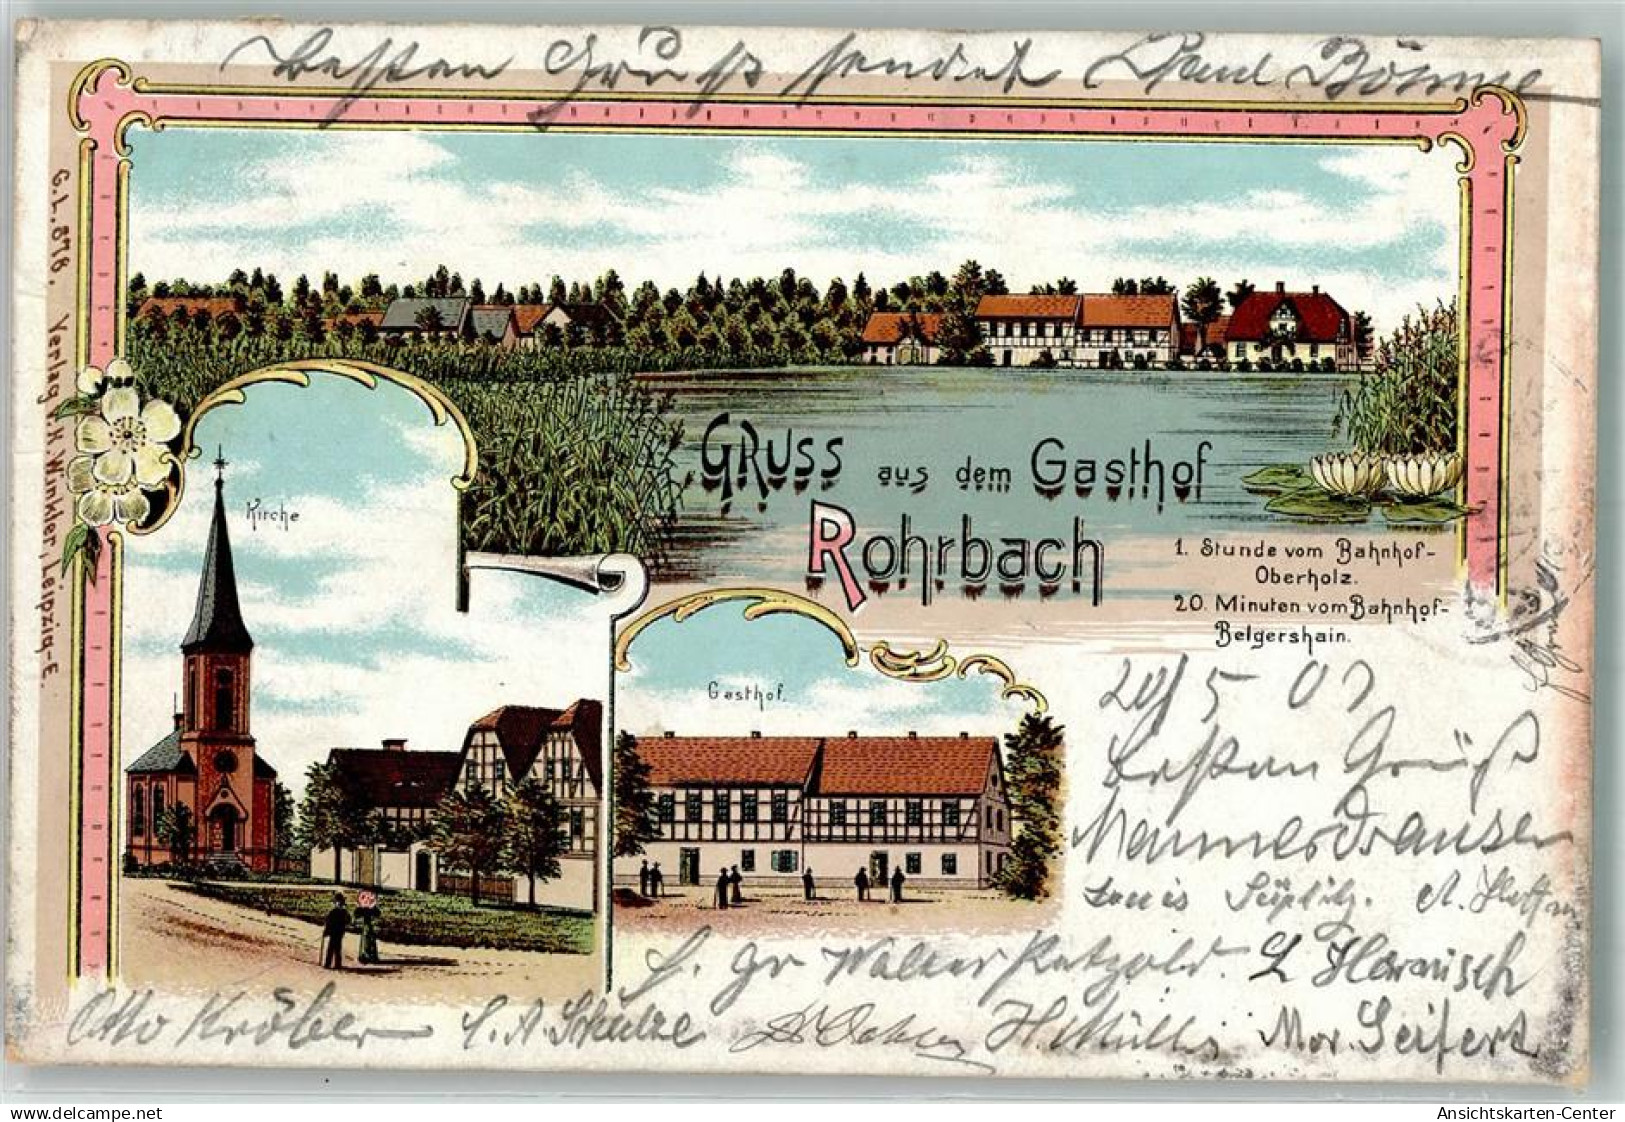 Besten Gruß sendet Paul Böhme
G.L. 878. Verlag v. K. Winkler, Leipzig-E.
Kirche
GRUSS aus dem Gasthof
Rohrbach
1. Stunde vom Bahnhof-
Oberholz.
20. Minuten vom Bahnhof-
Belgershain.
Gasthof.
20/5 07
Besten Gruß
Louis
H. Gr Walter Petzold. L Harnisch
Otto Kröber S. A. Schulze H. Müller Mor. Seifert
delcampe.net
Ansichtskarten-Center